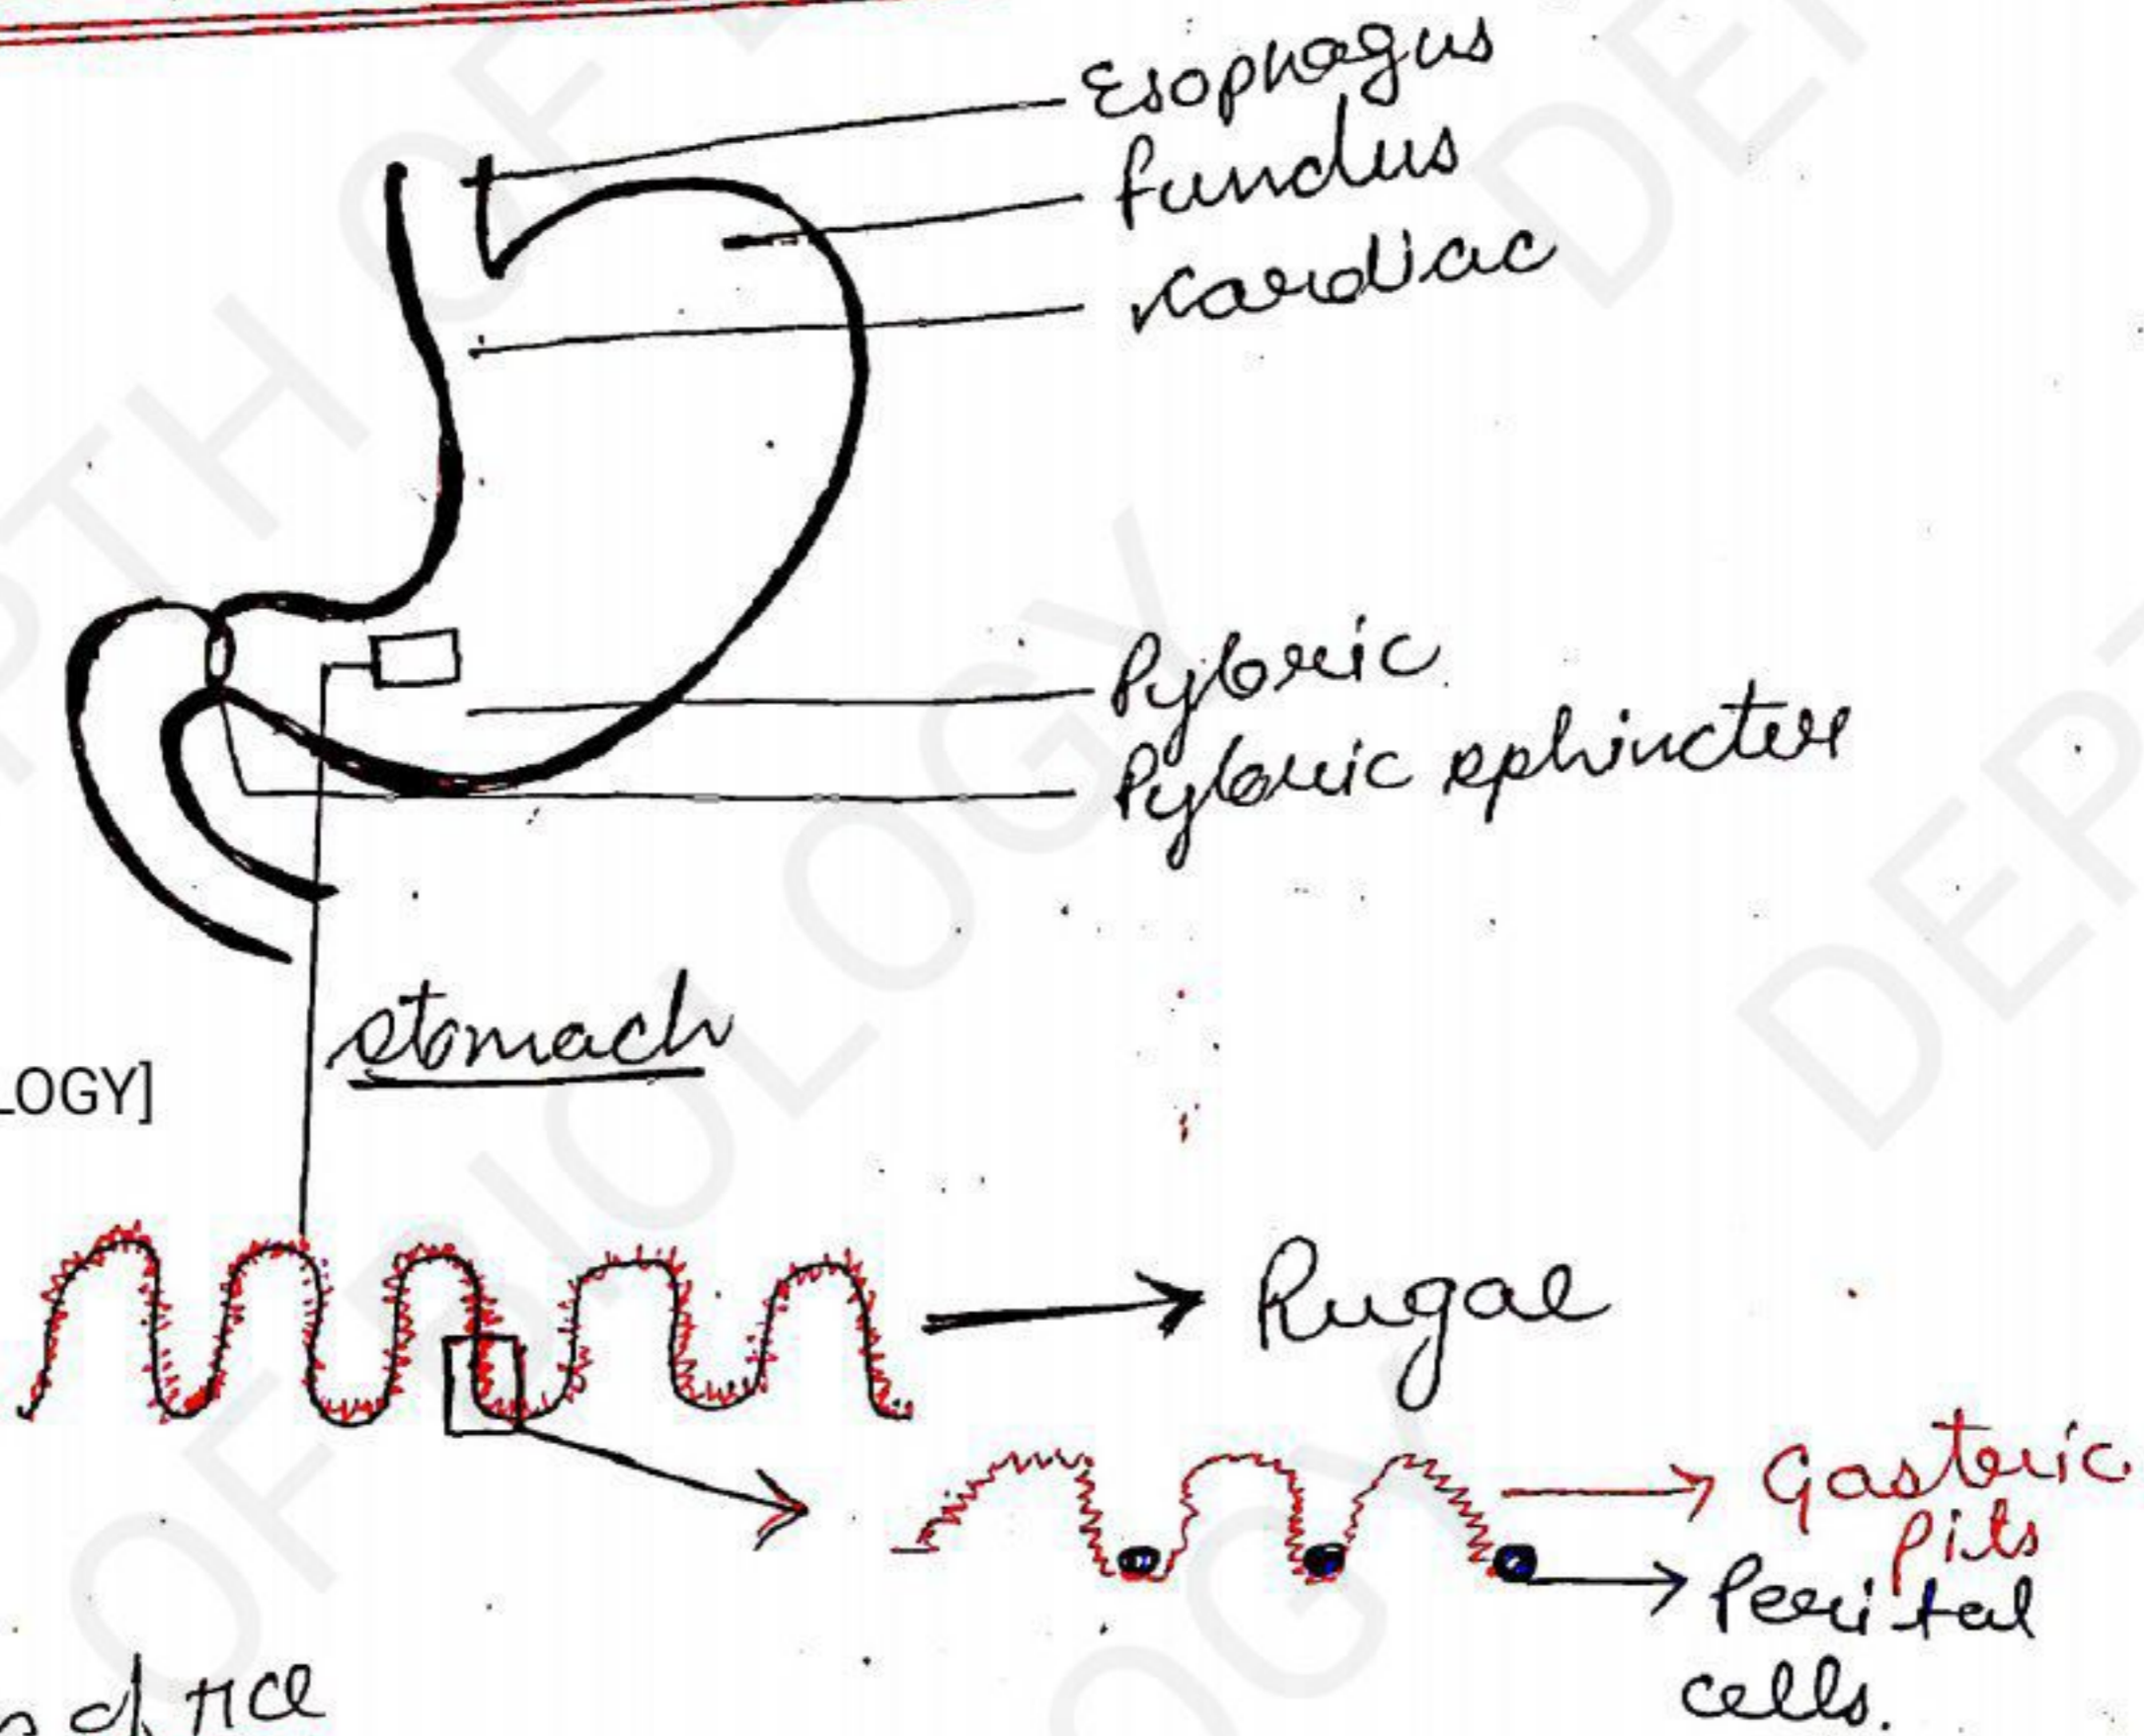 Esophagus
fundus
Cardiac
Pyloric
Pyloric sphincter
stomach
LOGY]
Rugae
Gasteric
pits
Perital
cells.
of HCl
DEPTH OF BIOLOGY